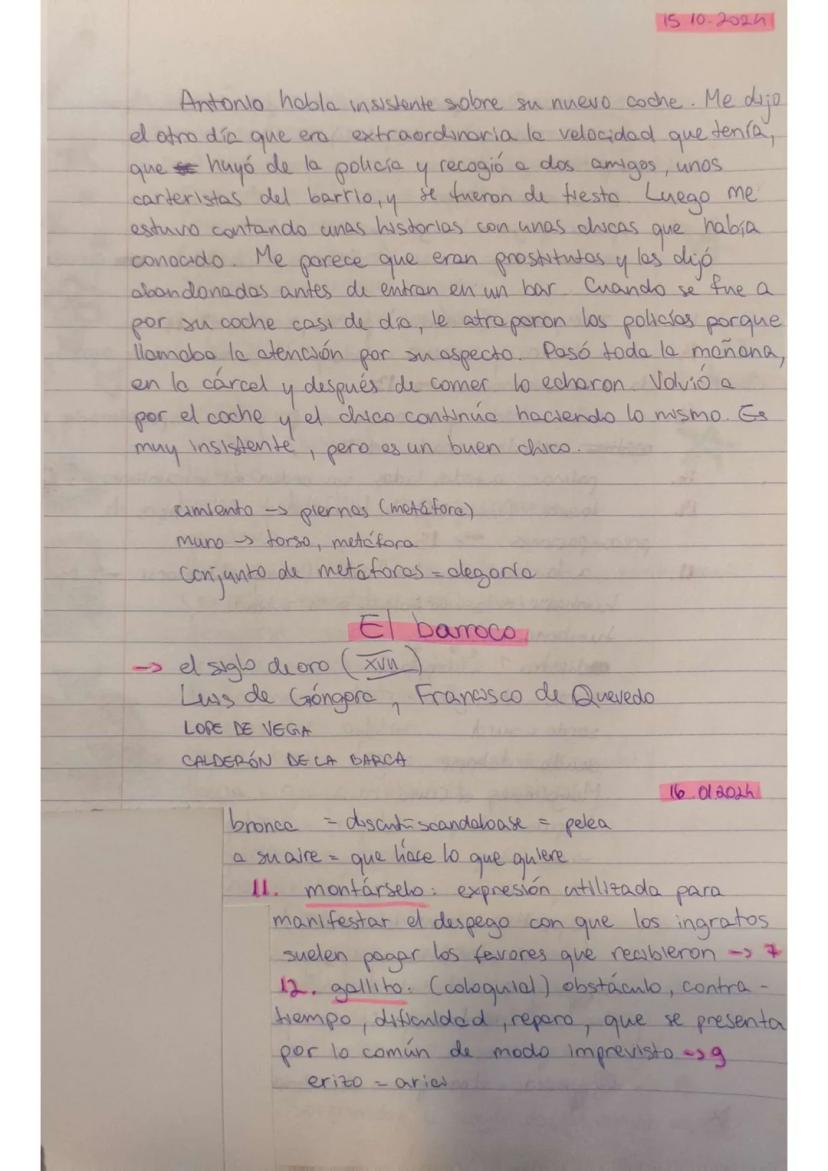 15 10.2024
Antonio habla insistente sobre su nuevo coche. Me dijo
el otro día que era extraordinaria la velocidad que tenía,
que huyó de la policía y recogió a dos amigos, unos
carteristas del barrio, y se fueron de fiesta. Luego me
estuvo contando unas historias con unas chicas que había
conocido. Me parece que eran prostitutas y las dijó
abandonadas antes de entran en un bar. Cuando se fue a
por su coche casi de día, le atraparon los policías porque
llamaba la atención por su aspecto. Pasó toda la mañana,
en la cárcel y después de comer lo echaron. Volvió a
por el coche y el chico continúa haciendo lo mismo. Es
muy insistente, pero es un buen chico.
cimiento -> piernas (metáfora)
muro -> torso, metáfora
conjunto de metáforas = alegoría
El barroco
-> el siglo de oro (XVII)
Luis de Góngora, Francisco de Quevedo
LOPE DE VEGA
CALDERÓN DE LA BARCA
16.01.2024
bronca = = pelea
a su aire = que hace lo que quiere
11. montárselo: expresión utilizada para
manifestar el despego con que los ingratos
suelen pagar los favores que recibieron -> 7
12. gallito: (coloquial) obstáculo, contra-
tiempo, dificuldad, reparo, que se presenta
por lo común de modo imprevisto -> 9
erizo = arici